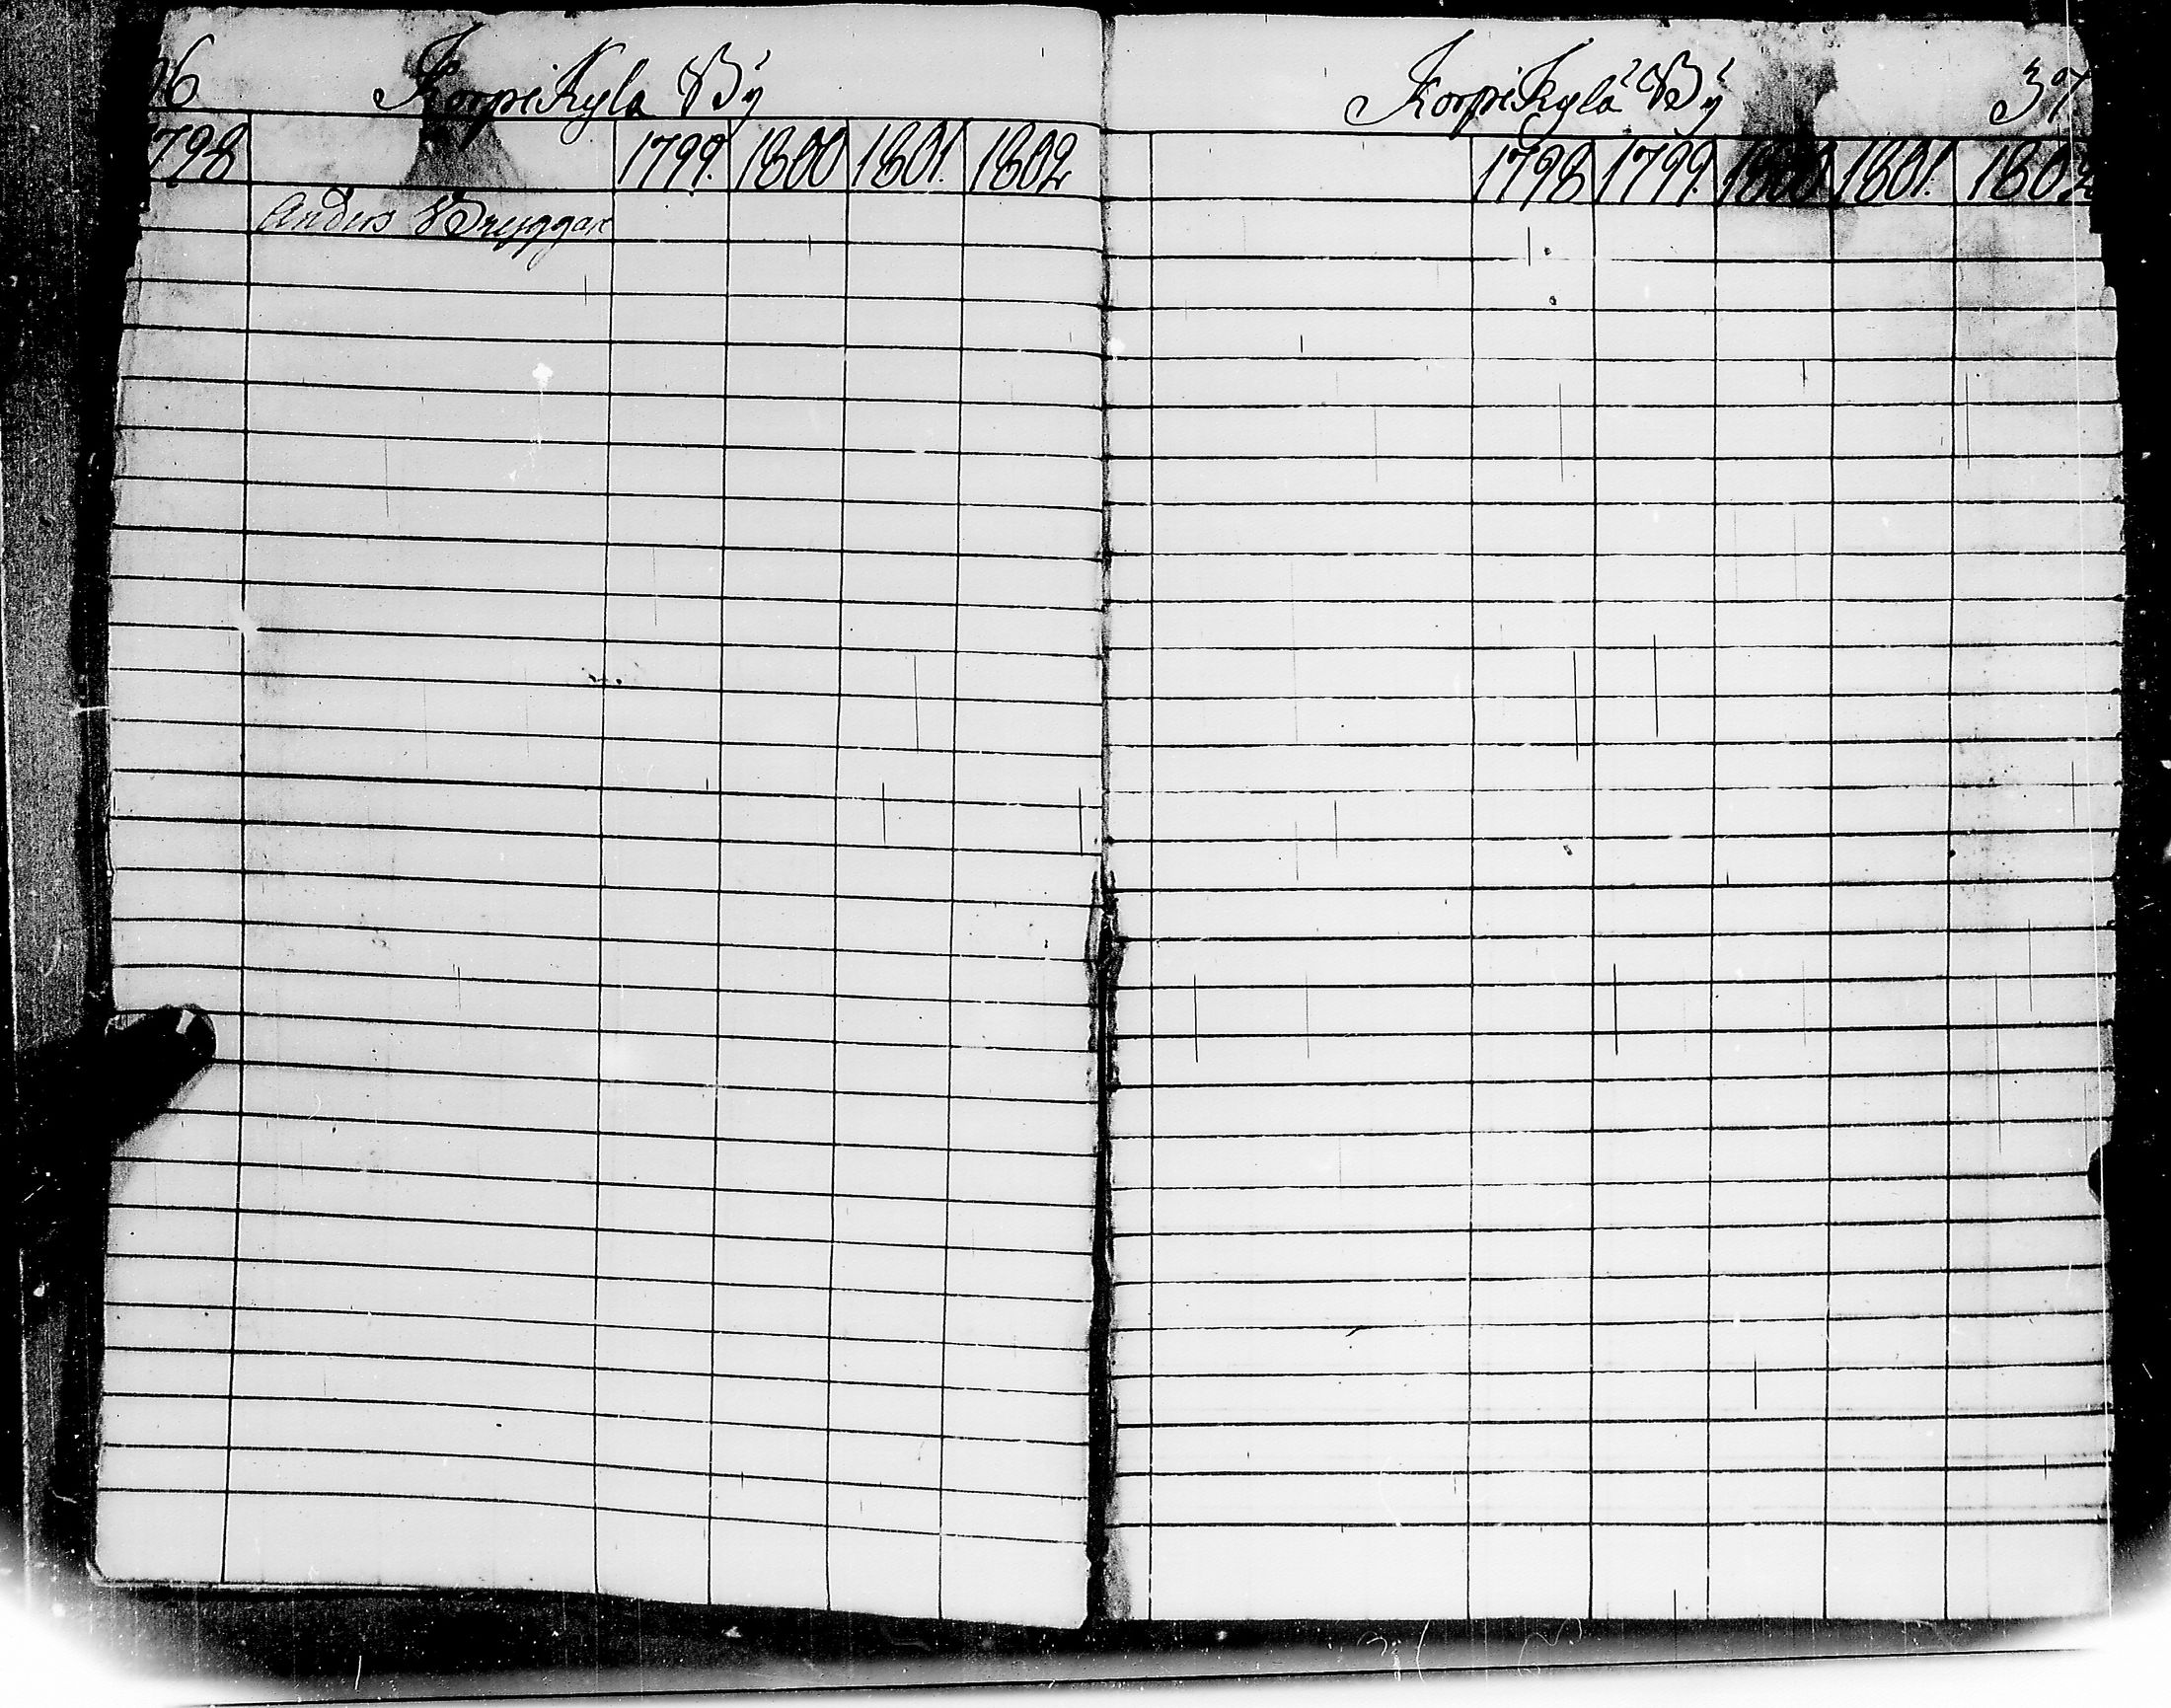 36 Korpikylä By
1798 1799. 1800 1801. 1802
Anders Bryggare
Korpikylä By 37
1798 1799. 1800 1801. 1802